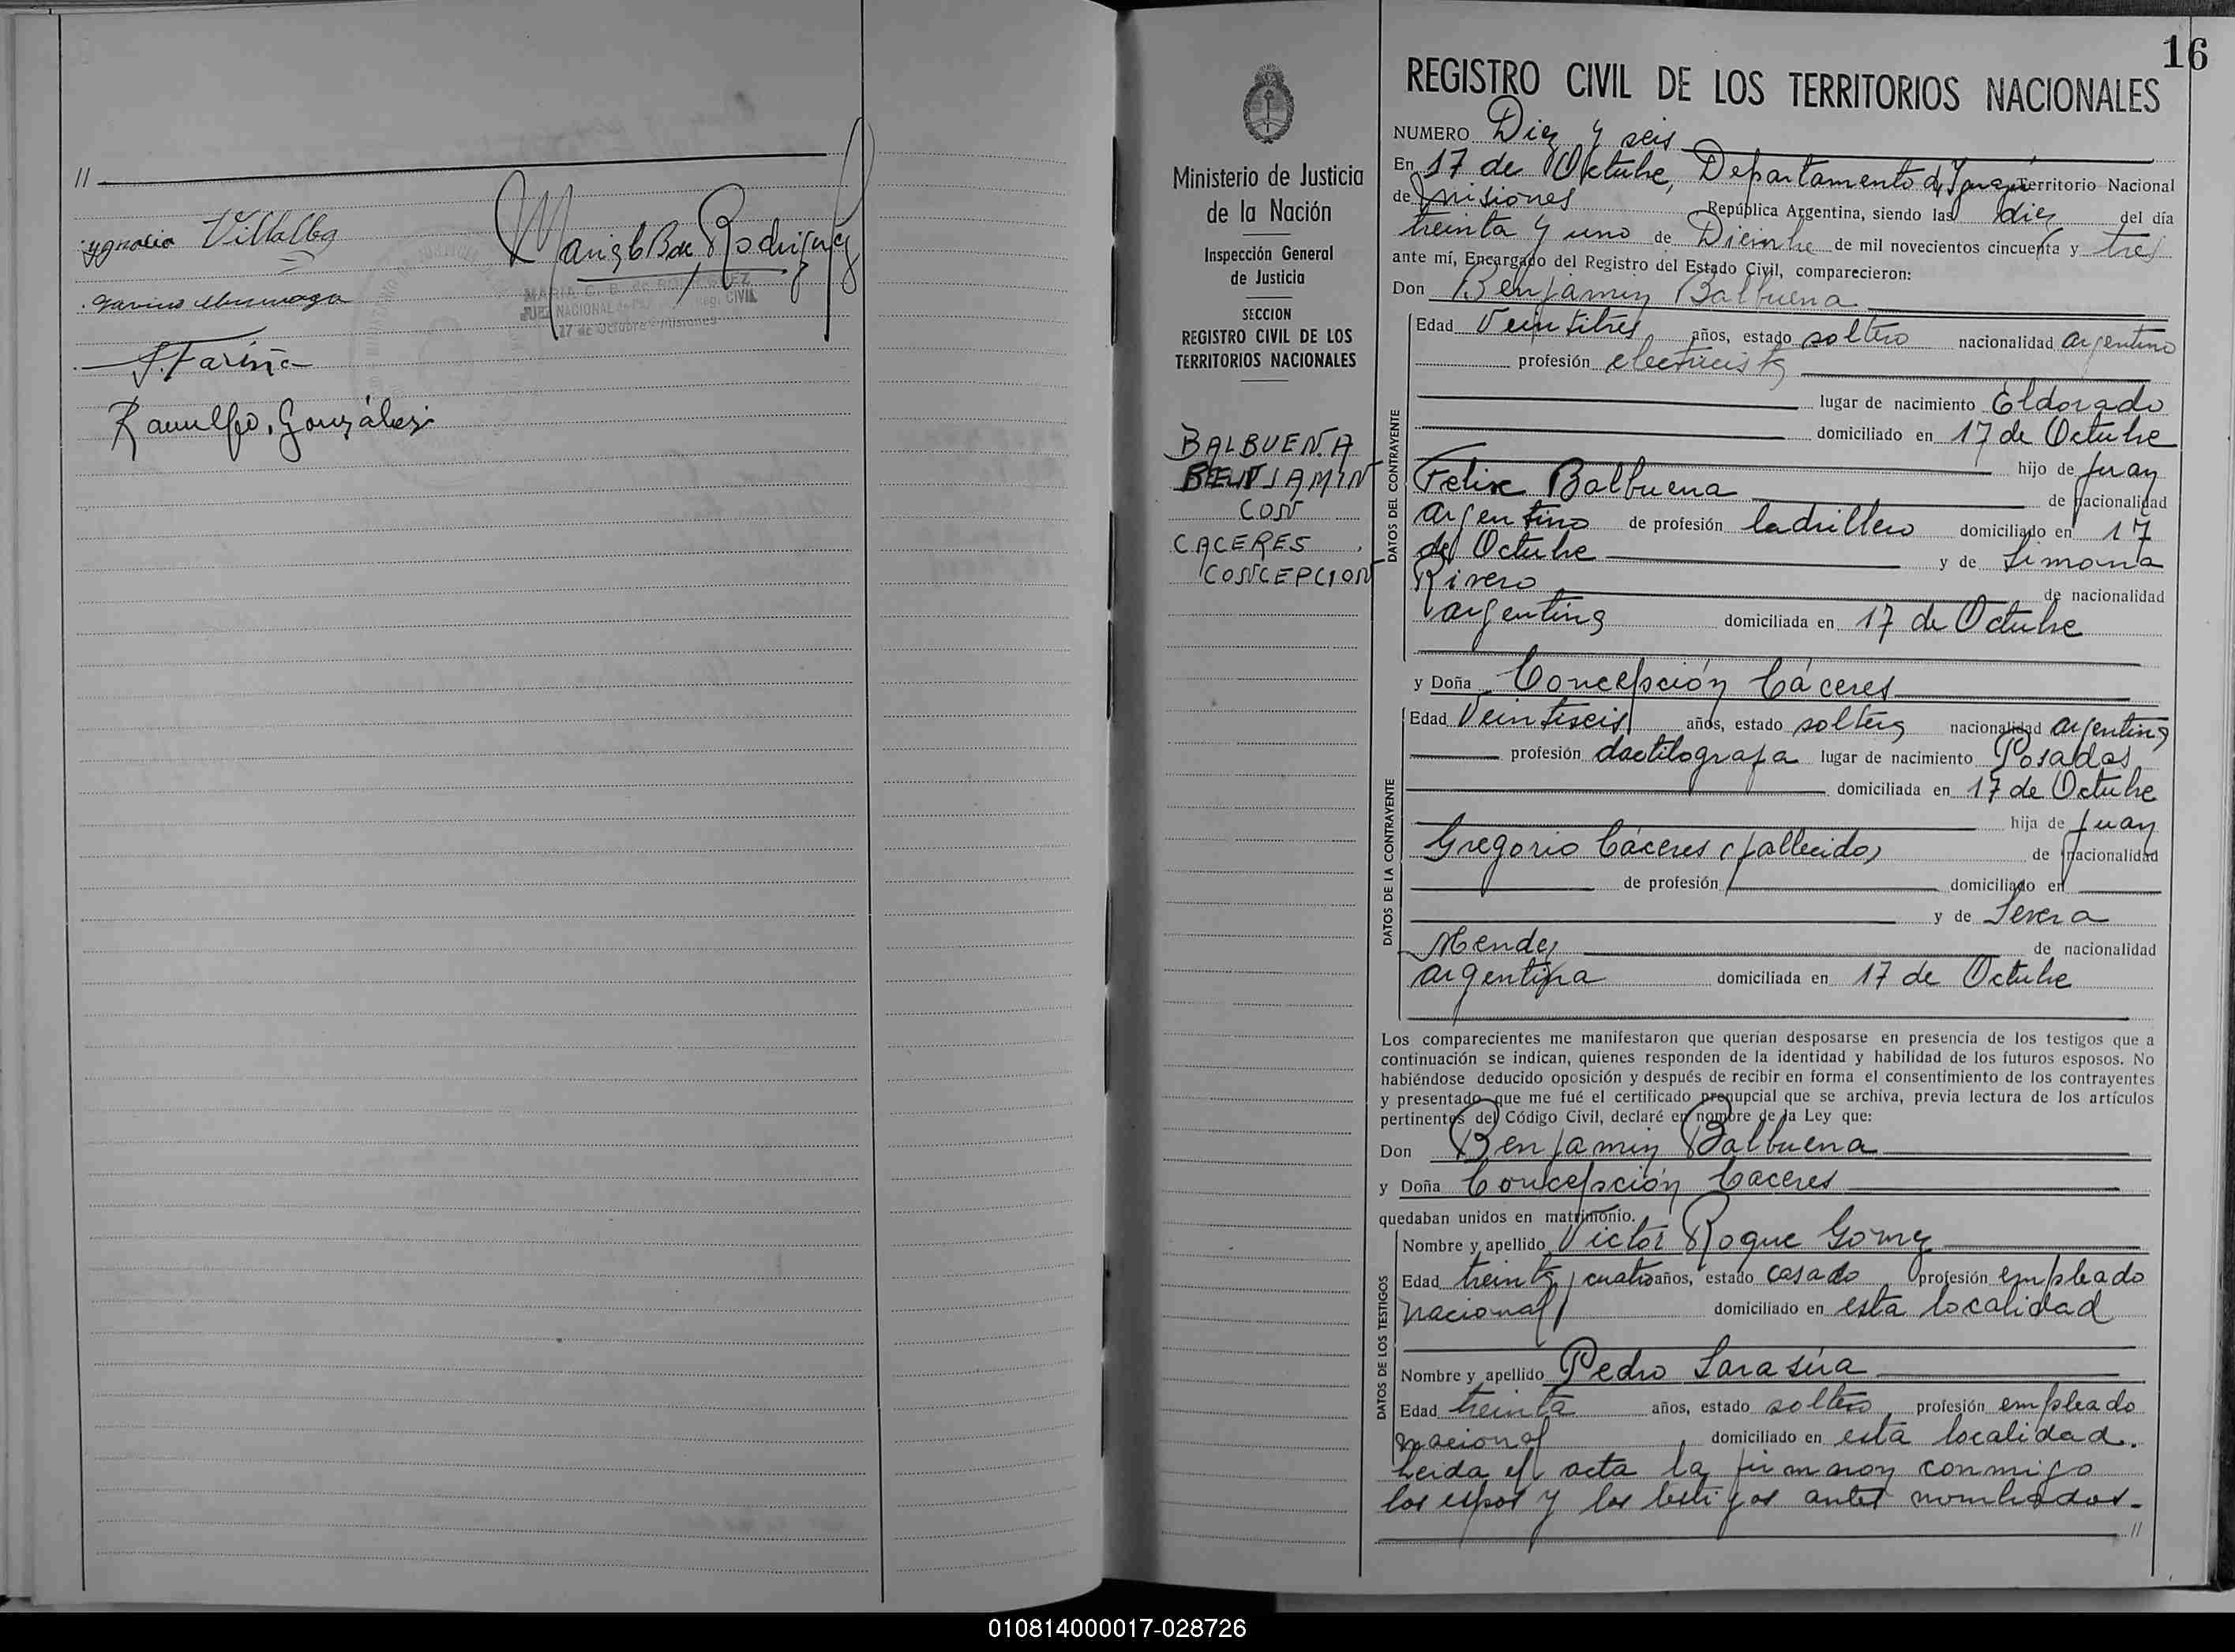 //
Ygnacia Villalba
Maria G B de Rodriguez
MARIA G. B. de RODRIGUEZ
JUEZ NACIONAL de PAZ CIVIL
17 de Octubre - Misiones
S. Fariña
Ranulfo. González
16
REGISTRO CIVIL DE LOS TERRITORIOS NACIONALES
Ministerio de Justicia
de la Nación
Inspección General
de Justicia
SECCION
REGISTRO CIVIL DE LOS
TERRITORIOS NACIONALES
BALBUENA
BENJAMIN
CON
CACERES
CONCEPCION
NUMERO Diez y seis
En 17 de Octubre, Departamento de Iguazú Territorio Nacional
de Misiones República Argentina, siendo las diez del día
treinta y uno de Diciembre de mil novecientos cincuenta y tres
ante mí, Encargado del Registro del Estado Civil, comparecieron:
Don Benjamin Balbuena
DATOS DEL CONTRAYENTE
Edad Veintitres años, estado soltero nacionalidad argentino
profesión electricista
lugar de nacimiento Eldorado
domiciliado en 17 de Octubre
hijo de Juan
Felix Balbuena de nacionalidad
argentino de profesión ladrillero domiciliado en 17
de Octubre y de Simona
Rivero de nacionalidad
argentina domiciliada en 17 de Octubre
y Doña Concepción Cáceres
DATOS DE LA CONTRAYENTE
Edad Veintiseis años, estado soltera nacionalidad argentina
profesión dactilografa lugar de nacimiento Posadas
domiciliada en 17 de Octubre
hija de Juan
Gregorio Cáceres (fallecido) de nacionalidad
de profesión domiciliado en
y de Severa
Mendez de nacionalidad
argentina domiciliada en 17 de Octubre
Los comparecientes me manifestaron que querían desposarse en presencia de los testigos que a
continuación se indican, quienes responden de la identidad y habilidad de los futuros esposos. No
habiéndose deducido oposición y después de recibir en forma el consentimiento de los contrayentes
y presentado que me fué el certificado prenupcial que se archiva, previa lectura de los artículos
pertinentes del Código Civil, declaré en nombre de la Ley que:
Don Benjamin Balbuena
y Doña Concepción Caceres
quedaban unidos en matrimonio.
DATOS DE LOS TESTIGOS
Nombre y apellido Victor Roque Gomez
Edad treinta y cuatro años, estado casado profesión empleado
nacional domiciliado en esta localidad
Nombre y apellido Pedro Sarasúa
Edad treinta años, estado soltero profesión empleado
nacional domiciliado en esta localidad.
Leida el acta la firmaron conmigo
los espos y los testigos antes nombrados.-
//
010814000017-028726